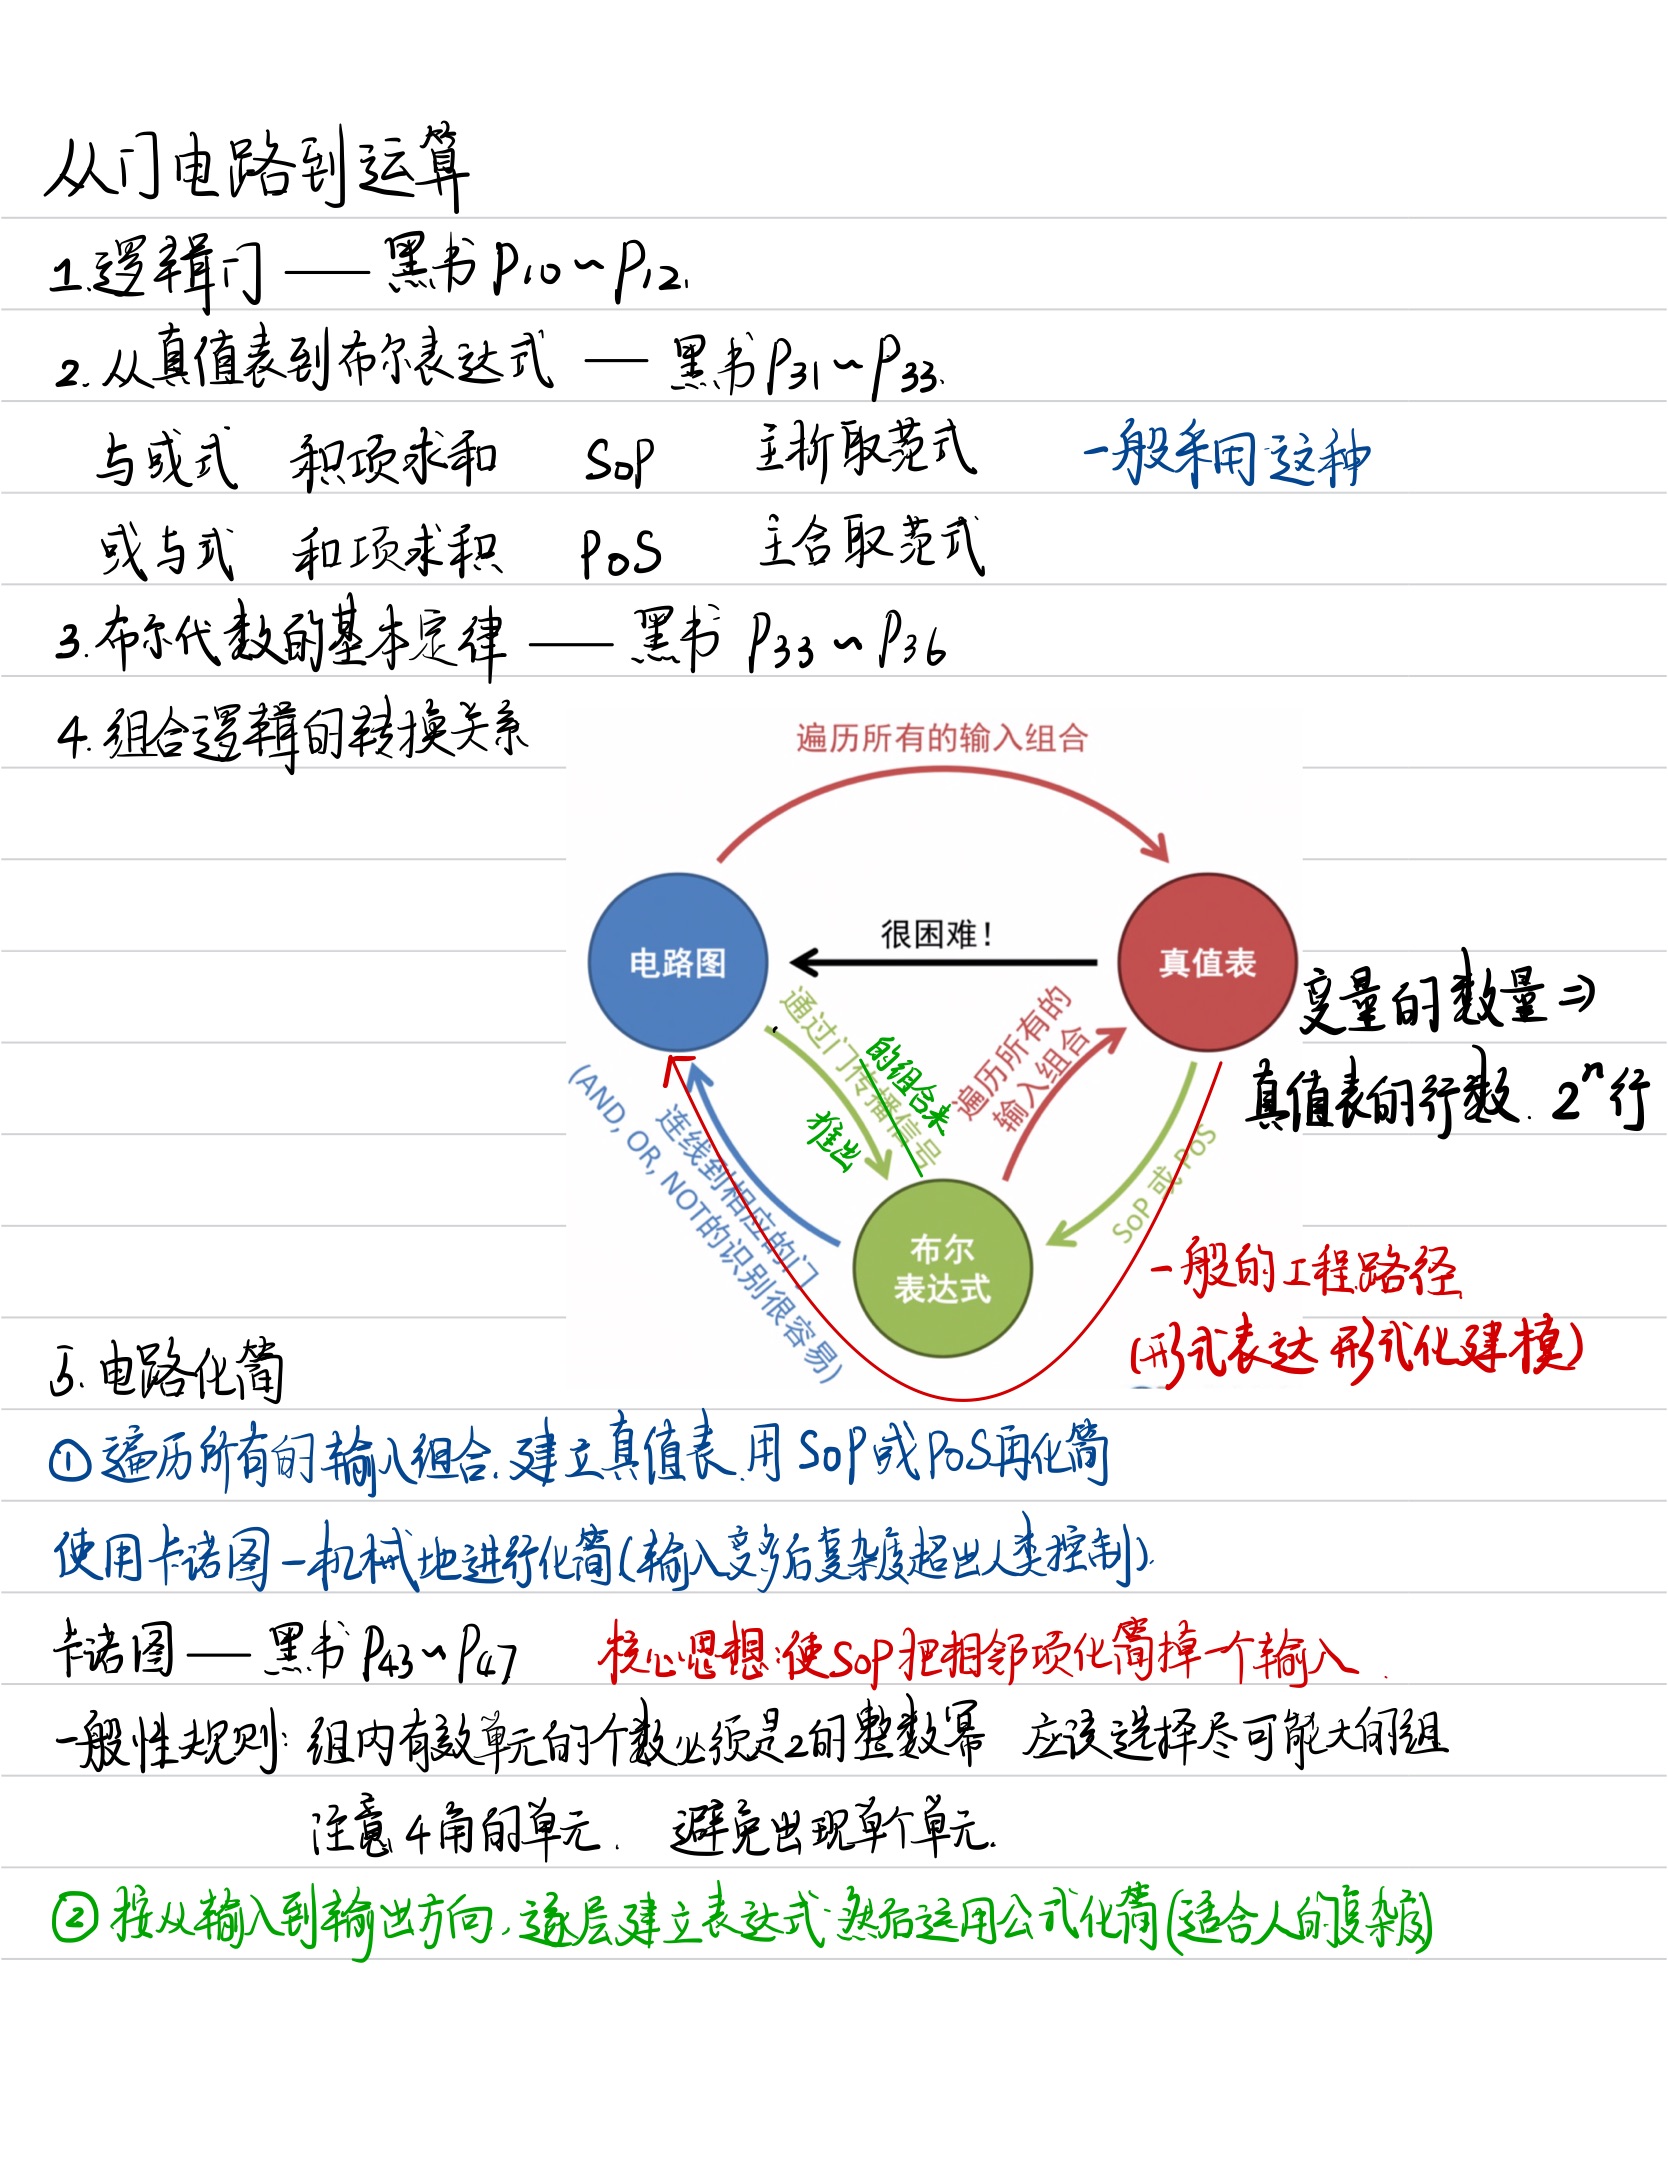 从门电路到运算
1.逻辑门 —— 黑书 P10~P12.
2.从真值表到布尔表达式 — 黑书P31~P33.
与或式 积项求和 SoP 主析取范式 一般采用这种
或与式 和项求积 PoS 主合取范式
3.布尔代数的基本定律 —— 黑书 P33~P36
4.组合逻辑的转换关系
遍历所有的输入组合
很困难！
电路图
真值表
变量的数量⇒
真值表的行数. 2ⁿ行
通过门传播信号
的组合来
推出
遍历所有的
输入组合
SoP 或 PoS
连线到相应的门
(AND, OR, NOT的识别很容易)
布尔
表达式
一般的工程路径
(形式表达 形式化建模)
5.电路化简
①遍历所有的输入组合.建立真值表.用SoP或PoS再化简
使用卡诺图—机械地进行化简(输入变多后复杂度超出人类控制).
卡诺图 — 黑书 P43~P47 核心思想:使SoP把相邻项化简掉一个输入.
一般性规则: 组内有效单元的个数必须是2的整数幂 应该选择尽可能大的组
注意4角的单元. 避免出现单个单元.
②按从输入到输出方向,逐层建立表达式.然后运用公式化简(适合人的复杂度)